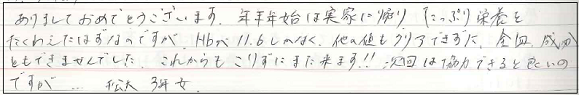 ありましておめでとうございます。年末年始は実家に帰り たっぷり栄養を
たくわえたはずなのですが、Hbが11.6しかなく、他の値もクリアできずに、全血、成分
ともできませんでした。これからもこりずにまた来ます!!次回は協力できると良いの
ですが… 松大 3年 女